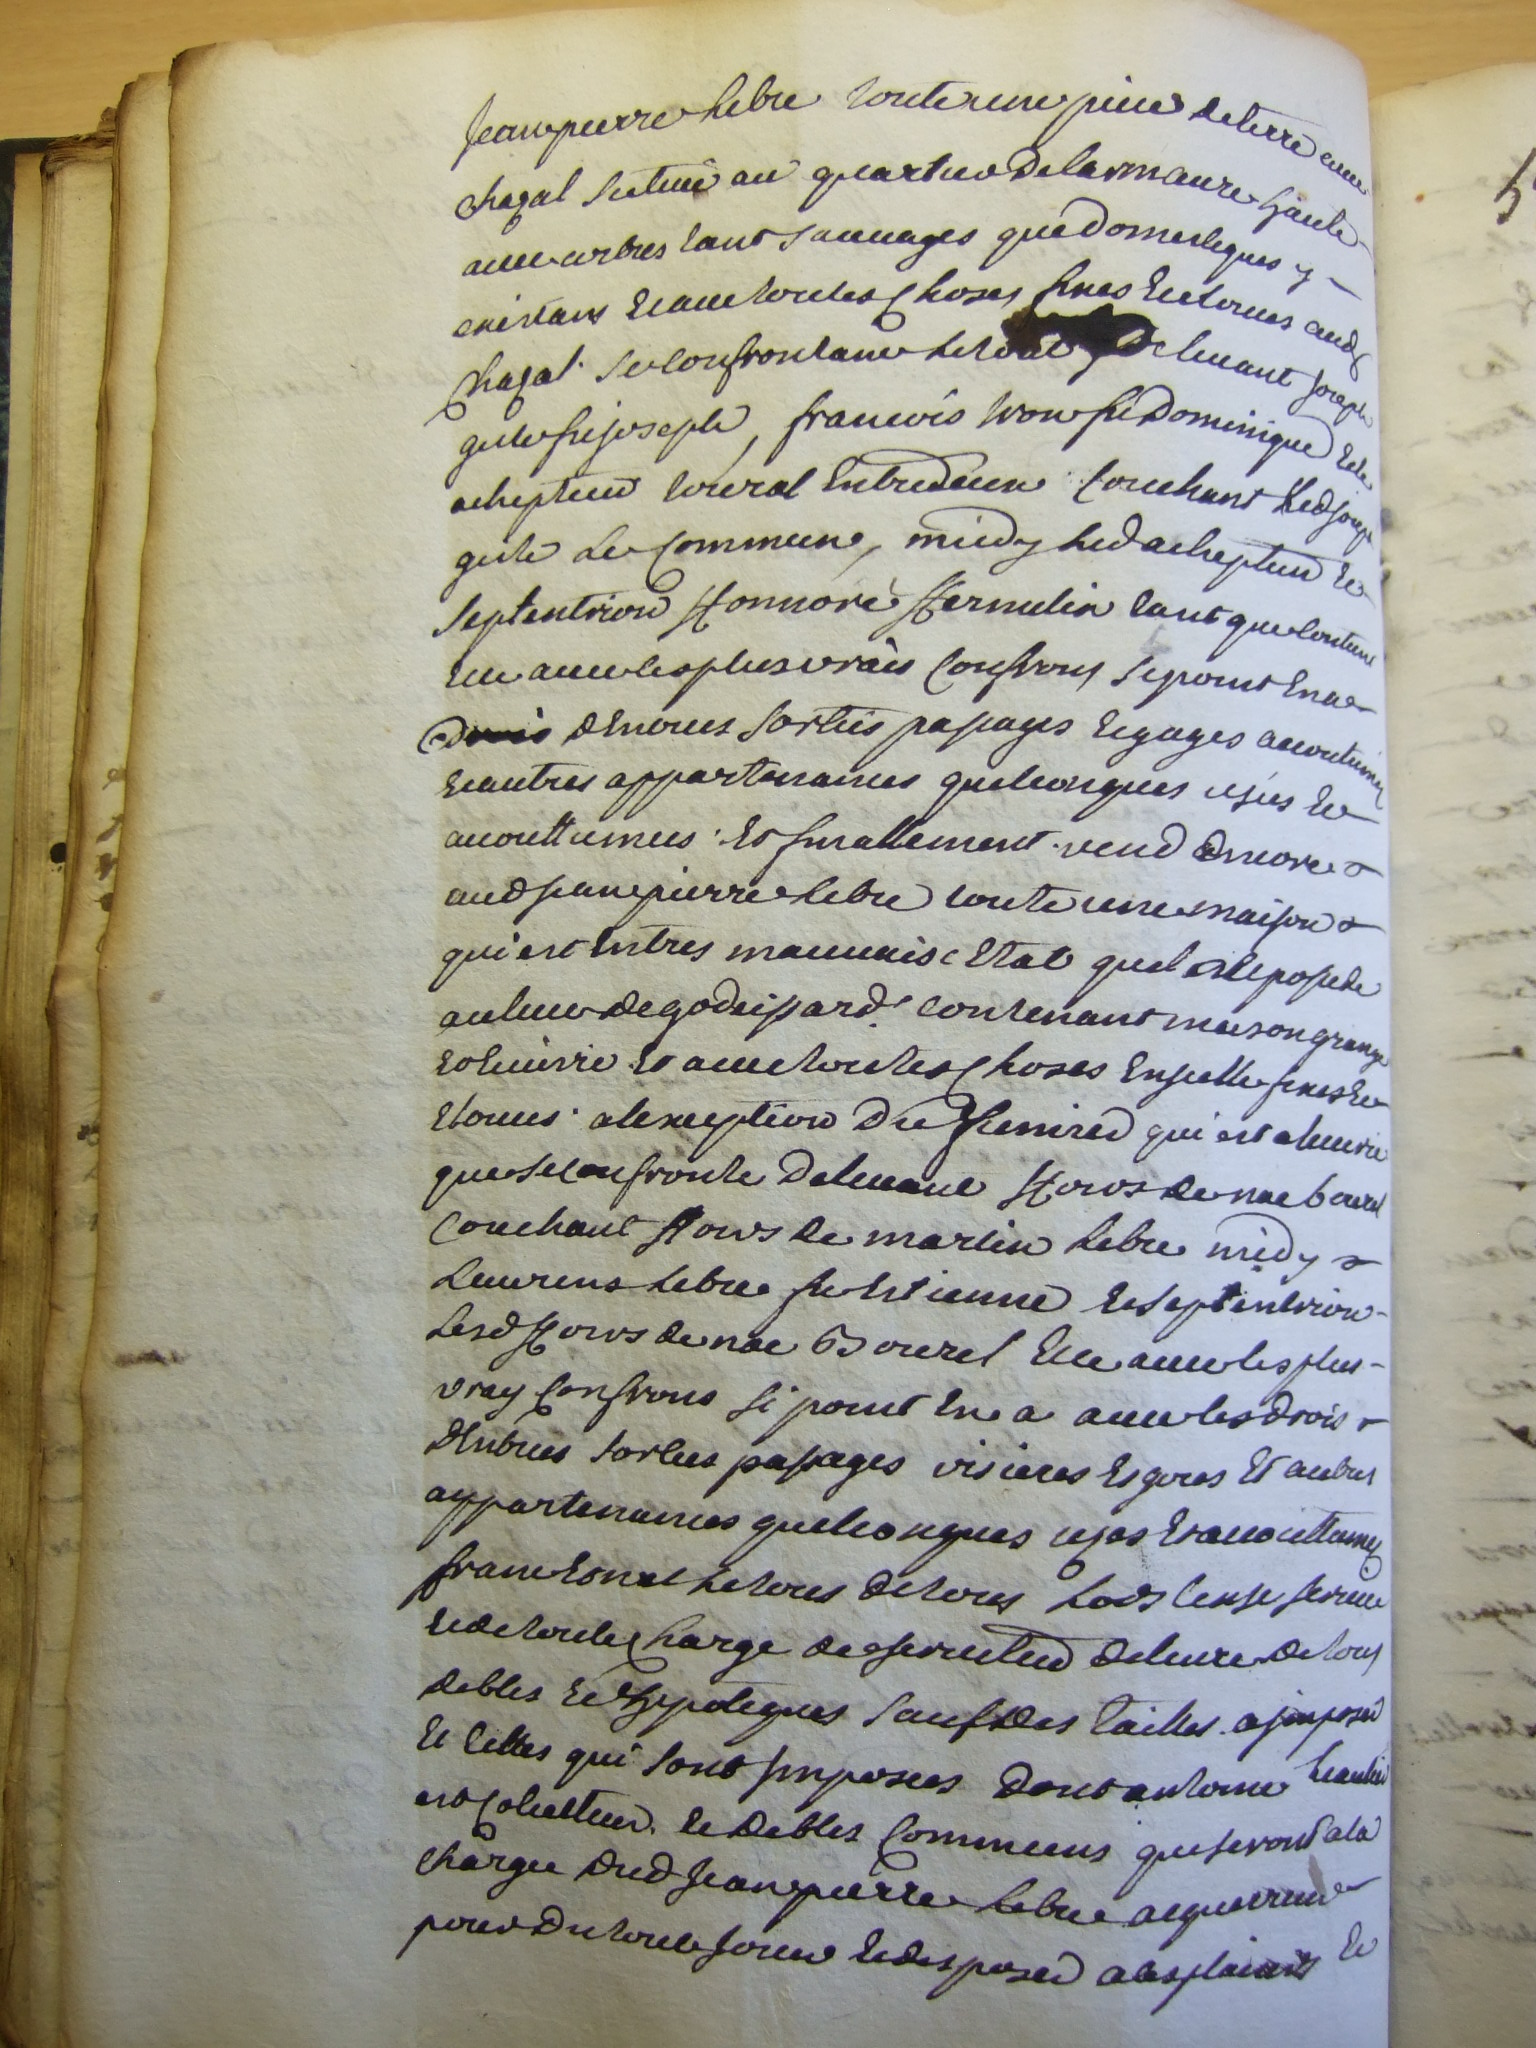 Jean pierre Lebre toute une piece de terre avec
chazal scitué au quartier de la maure haute
avec arbres tant sauuages que domestiques y
existans et avec toutes choses fixes et etoues aud
chazal se confrontant le tout de leuant Joseph
giste fu joseph, francois tron fu Dominique et le
achepteur toural entredeux couchant led joseph
giste le commun, midy led achepteur et
septentrion honnoré hermelin tant que contient
et avec les plus vrais confrons sy point en a
droits d'entrees sorties passages esgages accoutumes
et autres appartenances quelconques uzées et
accouttumees. Et finallement vend encore
aud jean pierre Lebre toute une maison
qui est en tres mauuais etat quel posede
au lieu de godeissard contenant maison grange
et ecuirie et avec toutes choses en jcelle fixes et
etoues a l'exception du fumier qui est a lecurie
que se confronte de leuant hoirs de noe bourel
couchant hoirs de martin Lebre midy
Laurens Lebre fu estienne et septentrion
lesd hoirs de noe Bourel et avec les plus
vray confrons si point en a avec les drois
d'entrees sorties passages visieres esgous et autres
appartenances quelconques uzes et accouttumes
franc le tout de tous lods cense service
et de toute charge de seruitud de leure de tous
debtes et hypoteques sauf des tailles a jmposer
et celles qui sont jmposees dont antoine
est colecteur et debtes communs que seront a la
charge dud Jean pierre Lebre acquereur
pour du tout jouir et disposer a ses plaisirs et